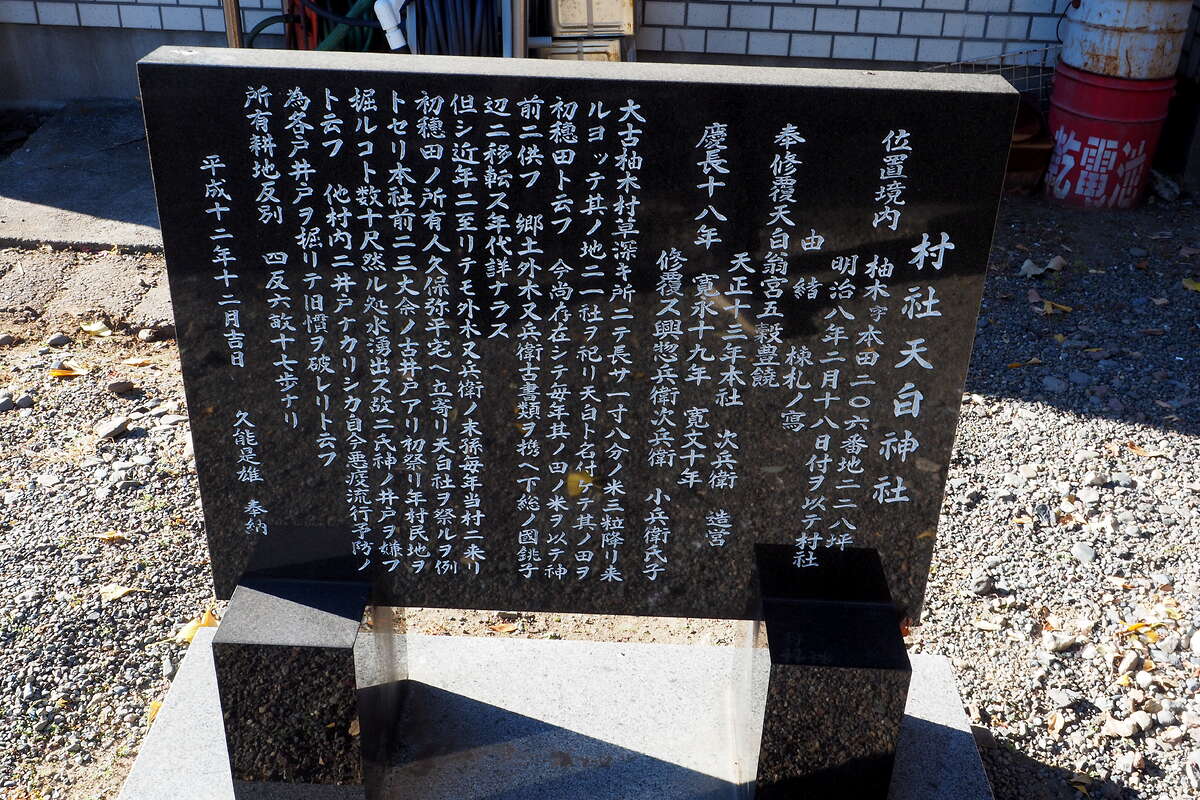 村社天白神社
位置境内 柚木字本田二〇六番地二二八坪
明治八年二月十八日付ヲ以テ村社
由緒 棟札ノ寫
奉修覆天白翁宮五穀豊饒
天正十三年本社 次兵衛 造営
慶長十八年 寛永十九年 寛文十年
修覆ス興惣兵衛次兵衛 小兵衛氏子
大古柚木村草深キ所ニテ長サ一寸八分ノ米三粒降リ来
ルヨッテ其ノ地ニ一社ヲ祀リ天白ト名付ケテ其ノ田ヲ
初穂田ト云フ 今尚存在シテ毎年其ノ田ノ米ヲ以テ神
前ニ供フ 郷土外木又兵衛士書類ヲ携ヘ下総ノ國銚子
辺ニ移転ス年代詳ナラス
但シ近年ニ至リテモ外木又兵衛ノ末孫毎年当村ニ来リ
初穂田ノ所有人久保弥平宅ヘ立寄リ天白社ヲ祭ルヲ例
トセリ本社前ニ三丈余ノ古井戸アリ初祭リ年村民地ヲ
堀ルコト数十尺然ル処水湧出ス故ニ氏神ノ井戸ヲ嫌フ
ト云フ 他村内ニ井戸ナカリシカ自今悪疫流行予防ノ
為各戸井戸ヲ掘リテ旧慣ヲ破レリト云フ
所有耕地反別 四反六畝十七歩ナリ
平成十二年十二月吉日 久能是雄 奉納
乾電池